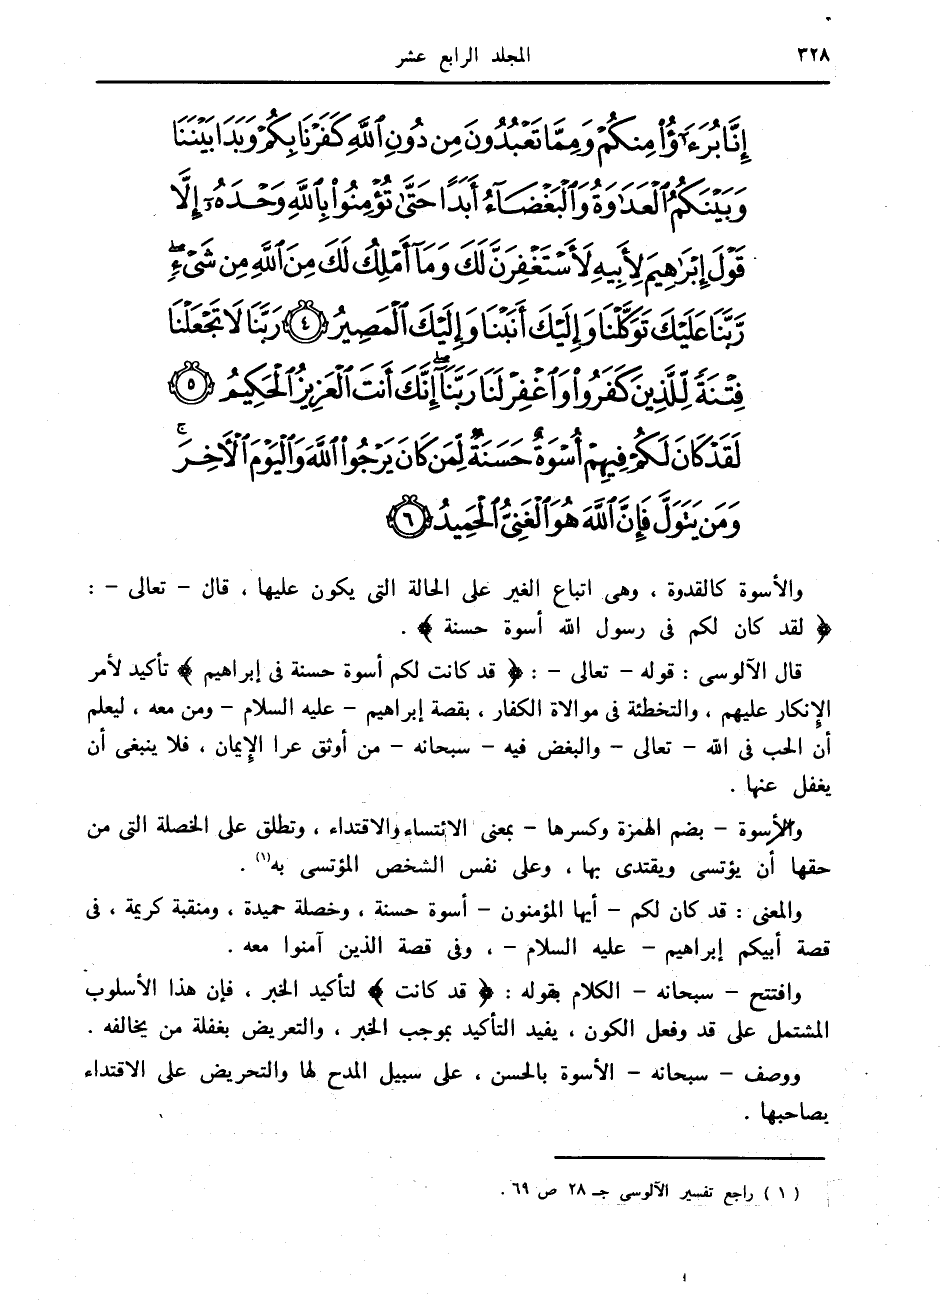 ٣٢٨ المجلد الرابع عشر
إِنَّا بُرَءَٰٓؤُا۟ مِنكُمْ وَمِمَّا تَعْبُدُونَ مِن دُونِ ٱللَّهِ كَفَرْنَا بِكُمْ وَبَدَا بَيْنَنَا
وَبَيْنَكُمُ ٱلْعَدَٰوَةُ وَٱلْبَغْضَآءُ أَبَدًا حَتَّىٰ تُؤْمِنُوا۟ بِٱللَّهِ وَحْدَهُۥٓ إِلَّا
قَوْلَ إِبْرَٰهِيمَ لِأَبِيهِ لَأَسْتَغْفِرَنَّ لَكَ وَمَآ أَمْلِكُ لَكَ مِنَ ٱللَّهِ مِن شَىْءٍۖ
رَّبَّنَا عَلَيْكَ تَوَكَّلْنَا وَإِلَيْكَ أَنَبْنَا وَإِلَيْكَ ٱلْمَصِيرُ ٤ رَبَّنَا لَا تَجْعَلْنَا
فِتْنَةً لِّلَّذِينَ كَفَرُوا۟ وَٱغْفِرْ لَنَا رَبَّنَآۖ إِنَّكَ أَنتَ ٱلْعَزِيزُ ٱلْحَكِيمُ ٥
لَقَدْ كَانَ لَكُمْ فِيهِمْ أُسْوَةٌ حَسَنَةٌ لِّمَن كَانَ يَرْجُوا۟ ٱللَّهَ وَٱلْيَوْمَ ٱلْءَاخِرَۚ
وَمَن يَتَوَلَّ فَإِنَّ ٱللَّهَ هُوَ ٱلْغَنِىُّ ٱلْحَمِيدُ ٦
والأسوة كالقدوة ، وهى اتباع الغير على الحالة التى يكون عليها ، قال – تعالى – :
﴿ لقد كان لكم فى رسول الله أسوة حسنة ﴾ .
قال الآلوسى : قوله – تعالى – : ﴿ قد كانت لكم أسوة حسنة فى إبراهيم ﴾ تأكيد لأمر
الإنكار عليهم ، والتخطئة فى موالاة الكفار ، بقصة إبراهيم – عليه السلام – ومن معه ، ليعلم
أن الحب فى الله – تعالى – والبغض فيه – سبحانه – من أوثق عرا الإيمان ، فلا ينبغى أن
يغفل عنها .
والأسوة – بضم الهمزة وكسرها – بمعنى الائتساء والاقتداء ، وتطلق على الخصلة التى من
حقها أن يؤتسى ويقتدى بها ، وعلى نفس الشخص المؤتسى به(١) .
والمعنى : قد كان لكم – أيها المؤمنون – أسوة حسنة ، وخصلة حميدة ، ومنقبة كريمة ، فى
قصة أبيكم إبراهيم – عليه السلام – ، وفى قصة الذين آمنوا معه .
وافتتح – سبحانه – الكلام بقوله : ﴿ قد كانت ﴾ لتأكيد الخبر ، فإن هذا الأسلوب
المشتمل على قد وفعل الكون ، يفيد التأكيد بموجب الخبر ، والتعريض بغفلة من يخالفه .
ووصف – سبحانه – الأسوة بالحسن ، على سبيل المدح لها والتحريض على الاقتداء
بصاحبها .
( ١ ) راجع تفسير الآلوسى جـ ٢٨ ص ٦٩ .